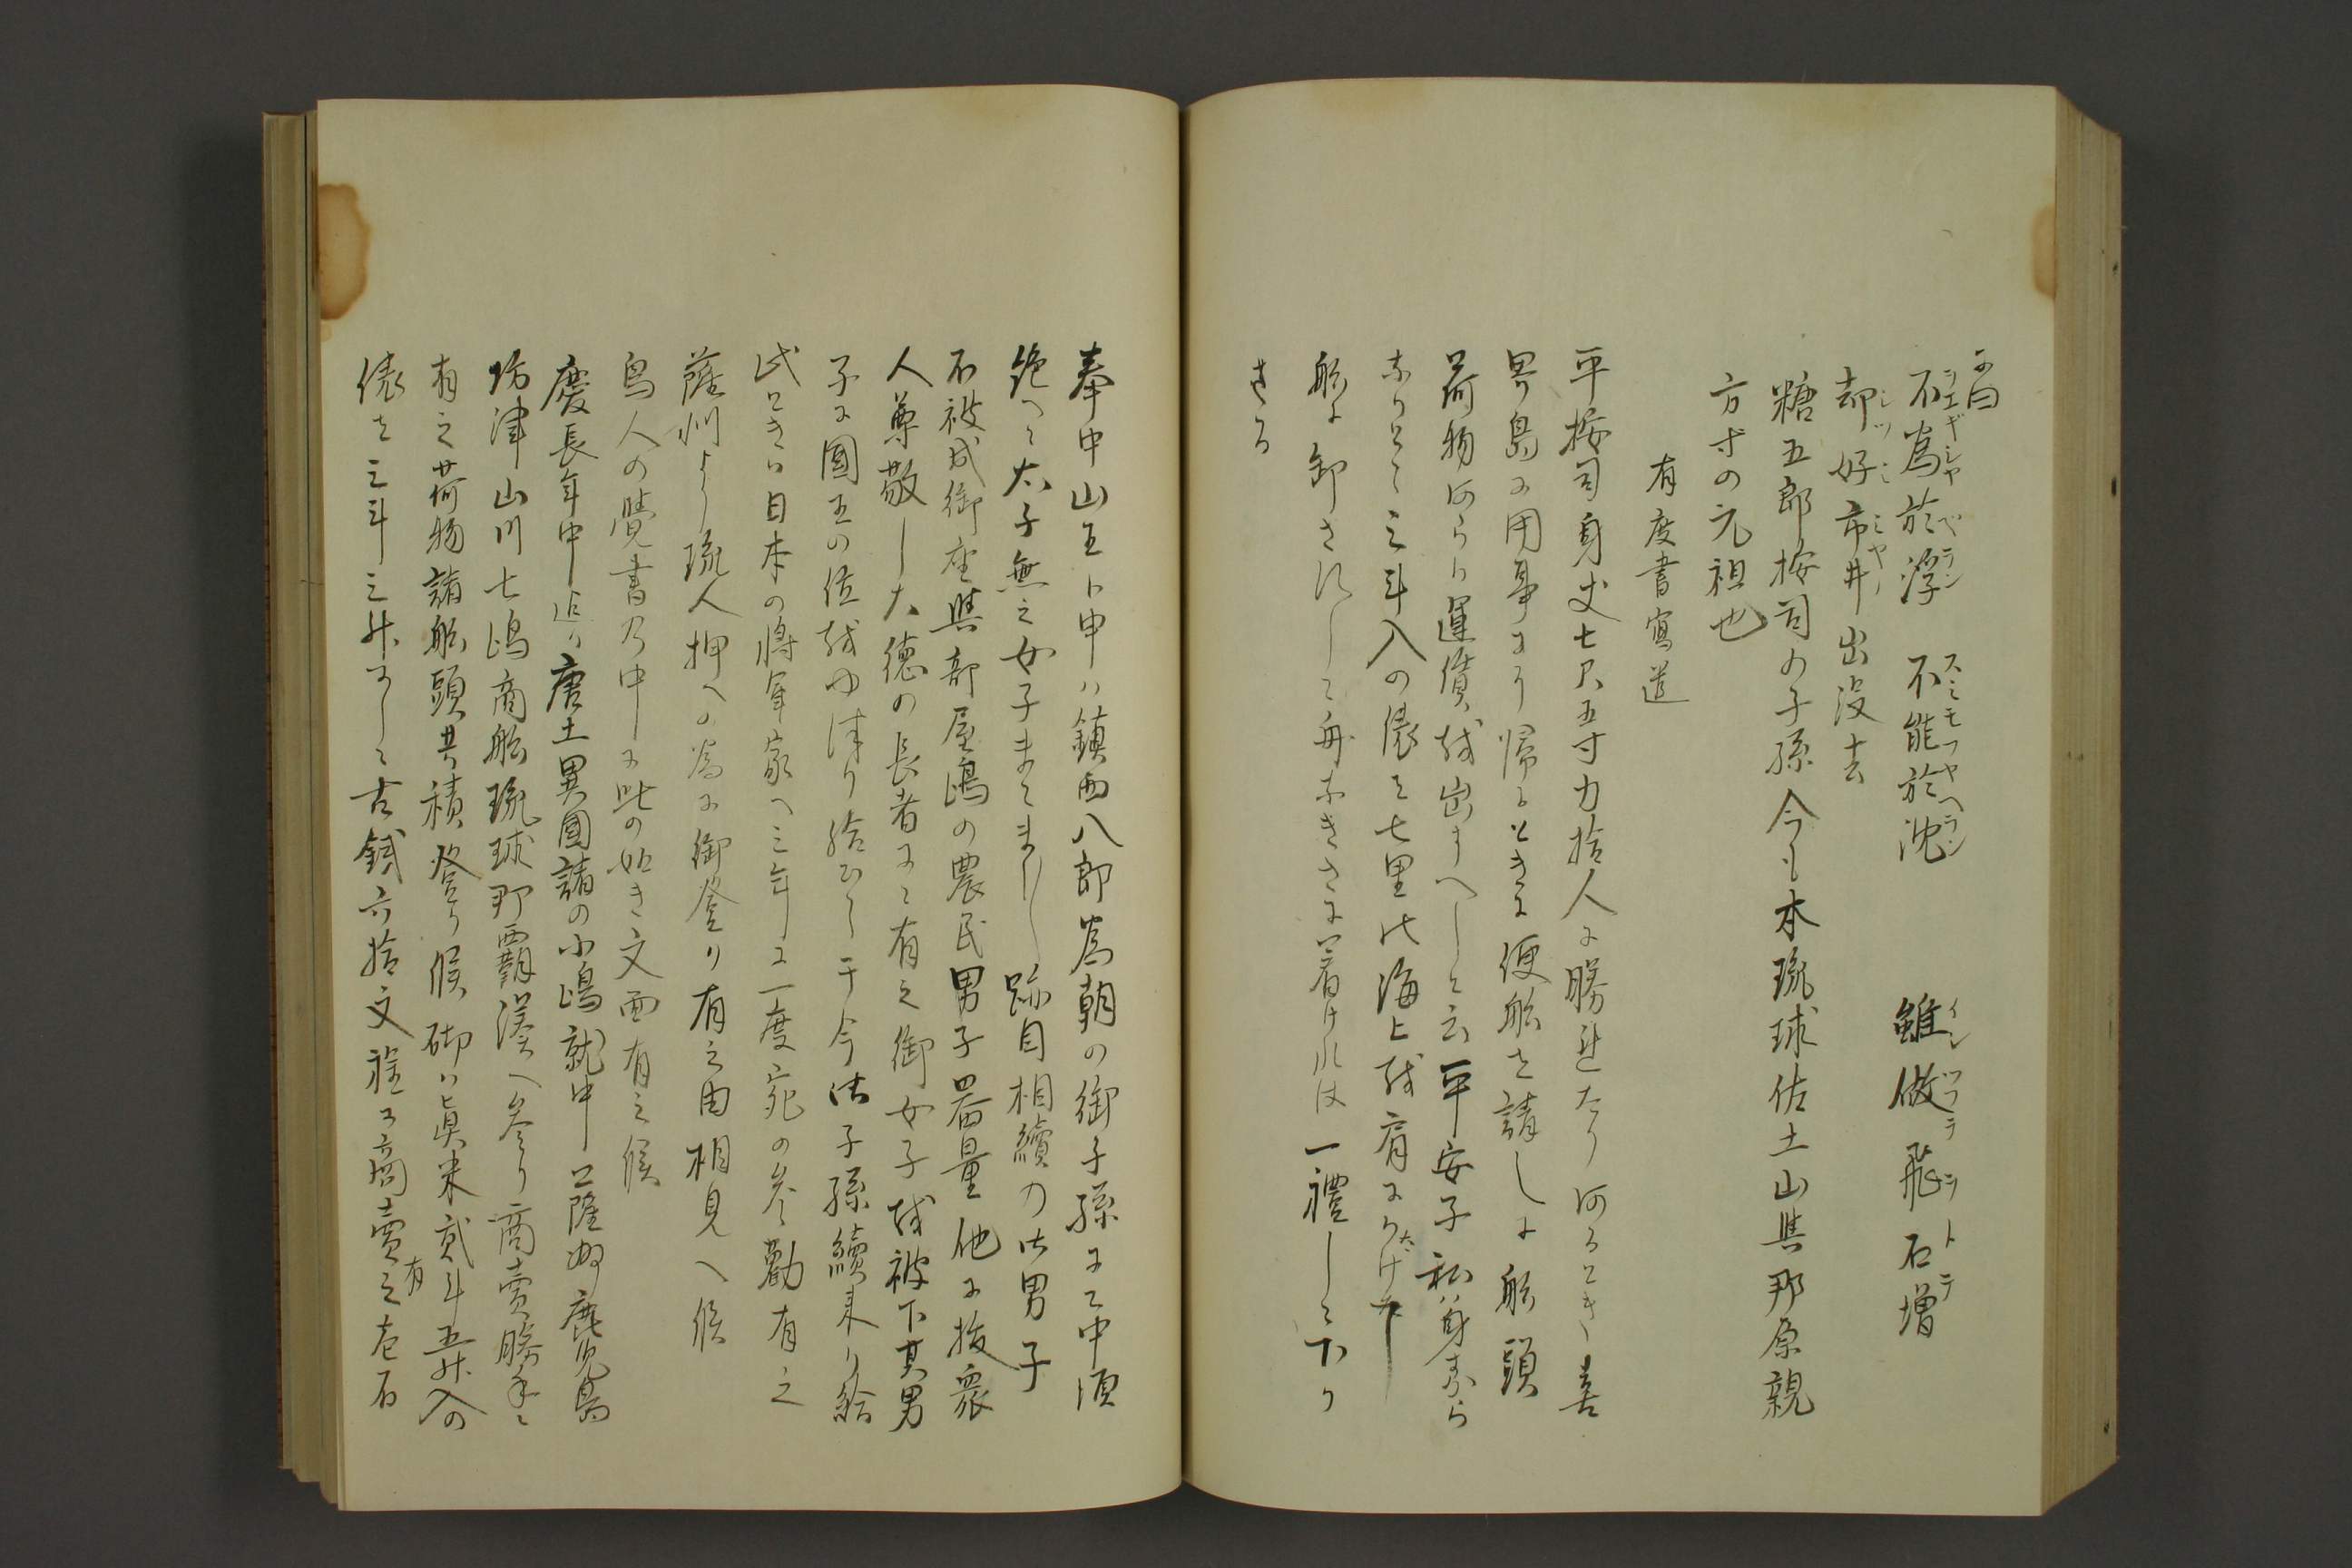 に曰
不為於浮　不能於沈　　雖做飛石増
却好市井出没去
糖五郎按司の子孫今も本琉球佐土山與那原親
方寸の元祖也
有度書寫遣
平按司身丈七尺五寸力拾人に勝連たり　あるとき喜
界島に用事ありて帰るときに便船を請しに船頭
荷物あらハ運債越出すへしと云平安子私ハ身すから
なりとて三斗入の俵を七里此海上越肩に
船に卸さすして舟なきさに着けれは一禮して下り
さる
奉中山王ト申ハ鎮西八郎為朝の御子孫にて中頃
絶へて太子無之女子まてまし〳〵跡目相續の御男子
不被成御座與部屋嶋の農民男子器量他に抜衆
人尊敬し大徳の長者にて有之御女子越被下其男
子に國王の位越ゆ津り給ひて于今御子孫續来り給
氏ときハ日本の将軍家へ三年に一度宛の参勤有之
薩州より琉人押への為に御登り有之由相見へ候
島人の覺書の中に此の如き文面有之候
慶長年中迄ハ唐土異國諸の小嶋就中上薩州鹿児島
坊津山川七嶋商船琉球那覇湊へ参り商賣勝手に
有之荷物諸船頭共積登り候砌ハ真米貮斗五升入の
俵を三斗三升にして古銭六拾文程に商賣有之壱石